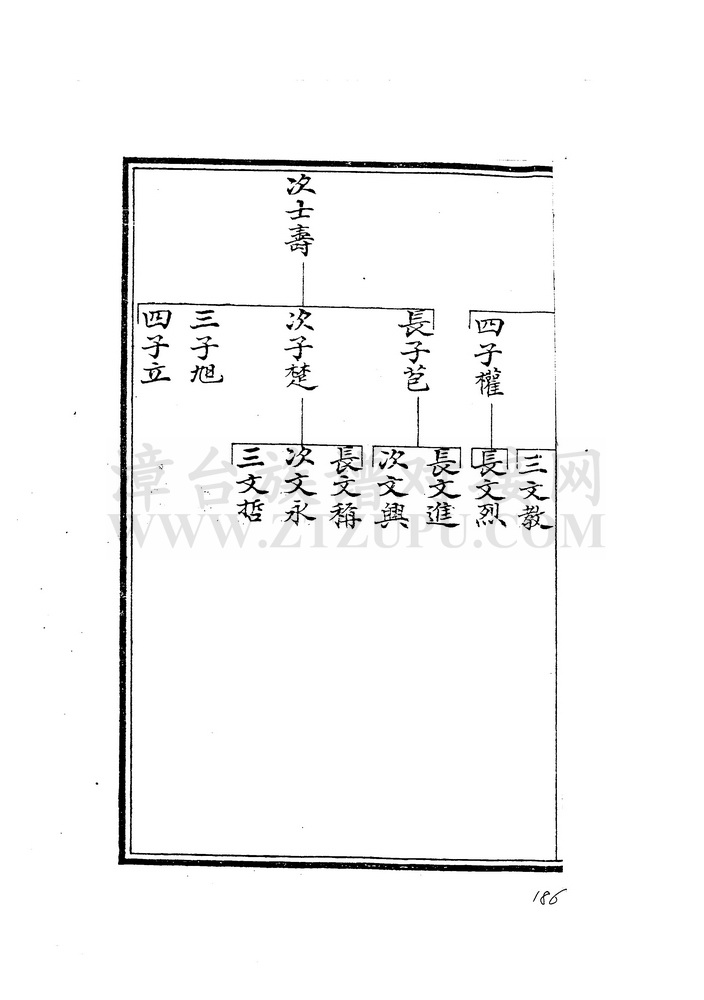 次士壽
四子權
長子芭
次子楚
三子旭
四子立
三文教
長文烈
長文進
次文興
長文稱
次文永
三文哲
章台族譜对接网
WWW.ZTZUPU.COM
186